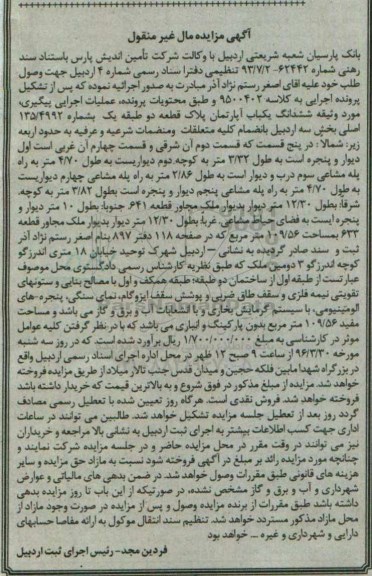 آگهی مزایده مال غیر منقول
بانک پارسیان شعبه شریعتی اردبیل با وکالت شرکت تأمین اندیش پارس باستناد سند
رهنی شماره ۶۲۴۴۲- ۹۳/۷/۲ تنظیمی دفتر اسناد رسمی شماره ۴ اردبیل جهت وصول
طلب خود علیه آقای اصغر رستم نژاد آذر مبادرت به صدور اجرائیه نموده که پس از تشکیل
پرونده اجرایی به کلاسه ۹۵۰۰۴۰۲ و طبق محتویات پرونده، عملیات اجرایی پیگیری،
مورد وثیقه ششدانگ یکباب آپارتمان پلاک قطعه دو طبقه یک بشماره ۱۳۵/۴۹۹۲
اصلی بخش سه اردبیل بانضمام کلیه متعلقات ومنضمات شرعیه و عرفیه به حدود اربعه
زیر: شمالا: در پنج قسمت که قسمت دوم آن شرقی و قسمت چهارم آن غربی است اول
دیوار و پنجره است به طول ۳/۳۲ متر به کوچه.دوم دیواریست به طول ۴/۷۰ متر به راه
پله مشاعی سوم درب و دیوار است به طول ۲/۸۶ متر به راه پله مشاعی چهارم دیواریست
به طول ۴/۷۰ متر به راه پله مشاعی پنجم دیوار و پنجره است بطول ۳/۸۲ متر به کوچه.
شرقا: بطول ۱۲/۳۰ متر دیوار بدیوار ملک مجاور قطعه ۶۴۱. جنوبا: بطول ۱۰ متر دیوار و
پنجره ایست به فضای حیاط مشاعی. غربا: بطول ۱۲/۳۰ متر دیوار بدیوار ملک مجاور قطعه
۶۳۳ بمساحت ۱۰۹/۵۶ متر مربع که در صفحه ۱۱۸ دفتر ۸۹۷ بنام اصغر رستم نژاد آذر
ثبت و سند صادر گردیده به نشانی/- اردبیل شهرک توحید خیابان ۱۸ متری اندرزگو
کوچه اندرزگو ۳ دومین ملک که طبق نظریه کارشناس رسمی دادگستری محل موصوف
عبارتست از طبقه اول از ساختمان دو طبقه؛ طبقه همکف و اول با مصالح بنایی و ستونهای
تقویتی نیمه فلزی و سقف طاق ضربی و پوشش سقف ایزوگام، نمای سنگی، پنجره-های
آلومینیومی، با سیستم گرمایش بخاری و با انشعابات آب و برق و گاز می باشد و مساحت
مفید ۱۰۹/۵۶ متر مربع بدون پارکینگ و انباری می باشد که با در نظر گرفتن کلیه عوامل
موثر در کارشناسی به مبلغ ۱/۷۰۰/۰۰۰/۰۰۰ ریال برآورد شده است. که در روز سه شنبه
مورخه ۹۶/۳/۳۰ از ساعت ۹ صبح ۱۲ ظهر در محل اداره اجرای اسناد رسمی اردبیل واقع
در بزرگراه شهدا مابین فلکه ججین و میدان قدس جنب تالار میلاد از طریق مزایده فروخته
خواهد شد. مزایده از مبلغ مذکور در فوق شروع و به بالاترین قیمت که خریدار داشته باشد
فروخته خواهد شد. فروش نقدی است. هرگاه روز تعیین شده با تعطیل رسمی مصادف
گردد روز بعد از تعطیل جلسه مزایده تشکیل خواهد شد. طالبین می توانند در ساعات
اداری جهت کسب اطلاعات بیشتر به اجرای ثبت اردبیل به نشانی بالا مراجعه و خریداران
نیز می توانند در وقت مقرر در محل مزایده حاضر و در جلسه مزایده شرکت نمایند و
چنانچه مورد مزایده زائد بر مبلغ در آگهی فروخته شود نسبت به مازاد حق مزایده و سایر
هزینه های قانونی طبق مقررات وصول خواهد شد. در ضمن بدهی های مالیاتی و عوارض
شهرداری و آب و برق و گاز مشخص نشده، در صورتیکه از این باب تا روز مزایده بدهی
داشته باشد طبق مقررات از برنده مزایده وصول و پس از مزایده در صورت وجود مازاد از
محل مازاد مذکور مسترد خواهد شد. تنظیم سند انتقال موکول به ارائه مفاصا حسابهای
دارایی و شهرداری و غیره ... خواهد بود
فردین مجد- رئیس اجرای ثبت اردبیل